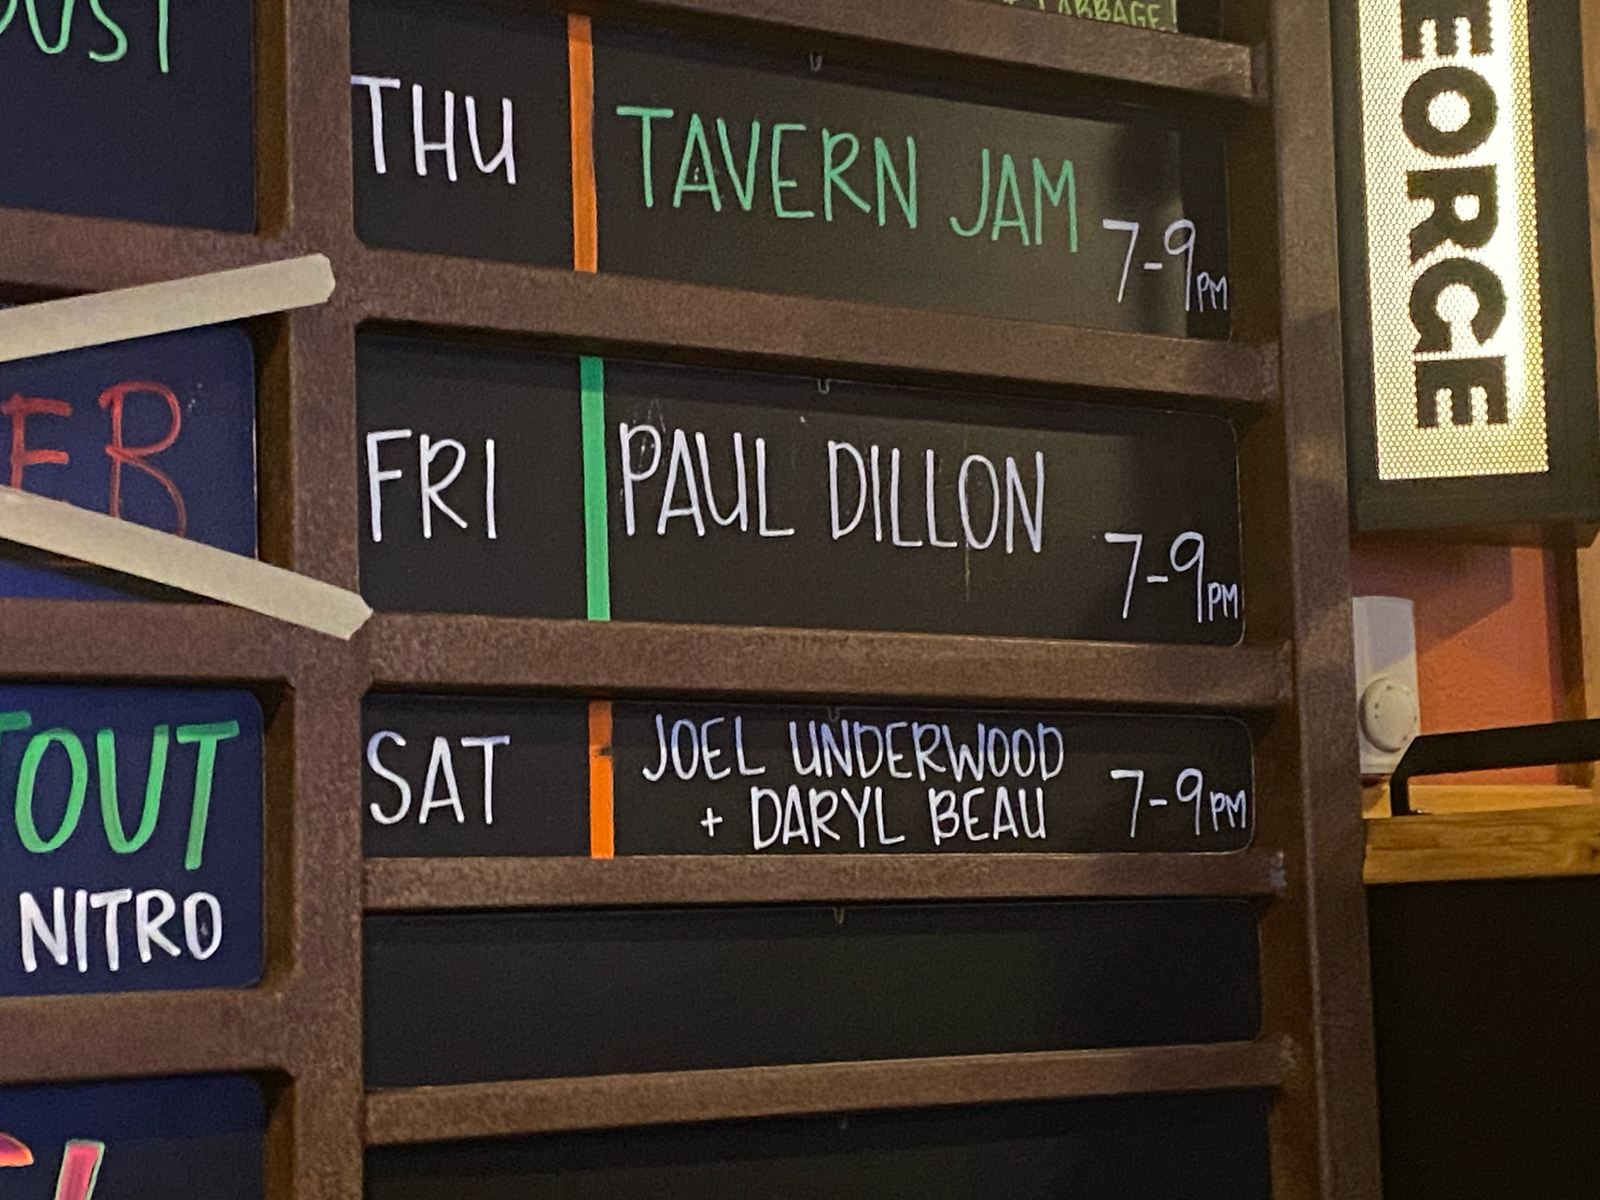 CABBAGE!
THU
TAVERN JAM
7-9PM
FRI
PAUL DILLON
7-9PM
SAT
JOEL UNDERWOOD
+ DARYL BEAU
7-9PM
NITRO
EORGE